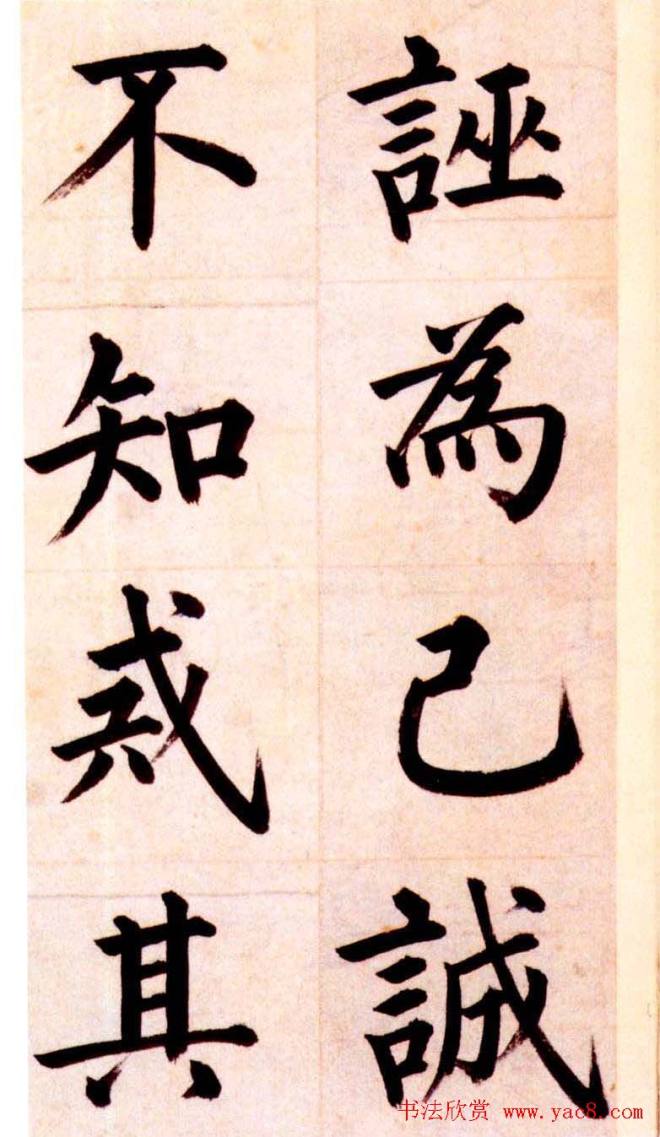 誣為己誠
不知戒其
书法欣赏 www.yac8.com